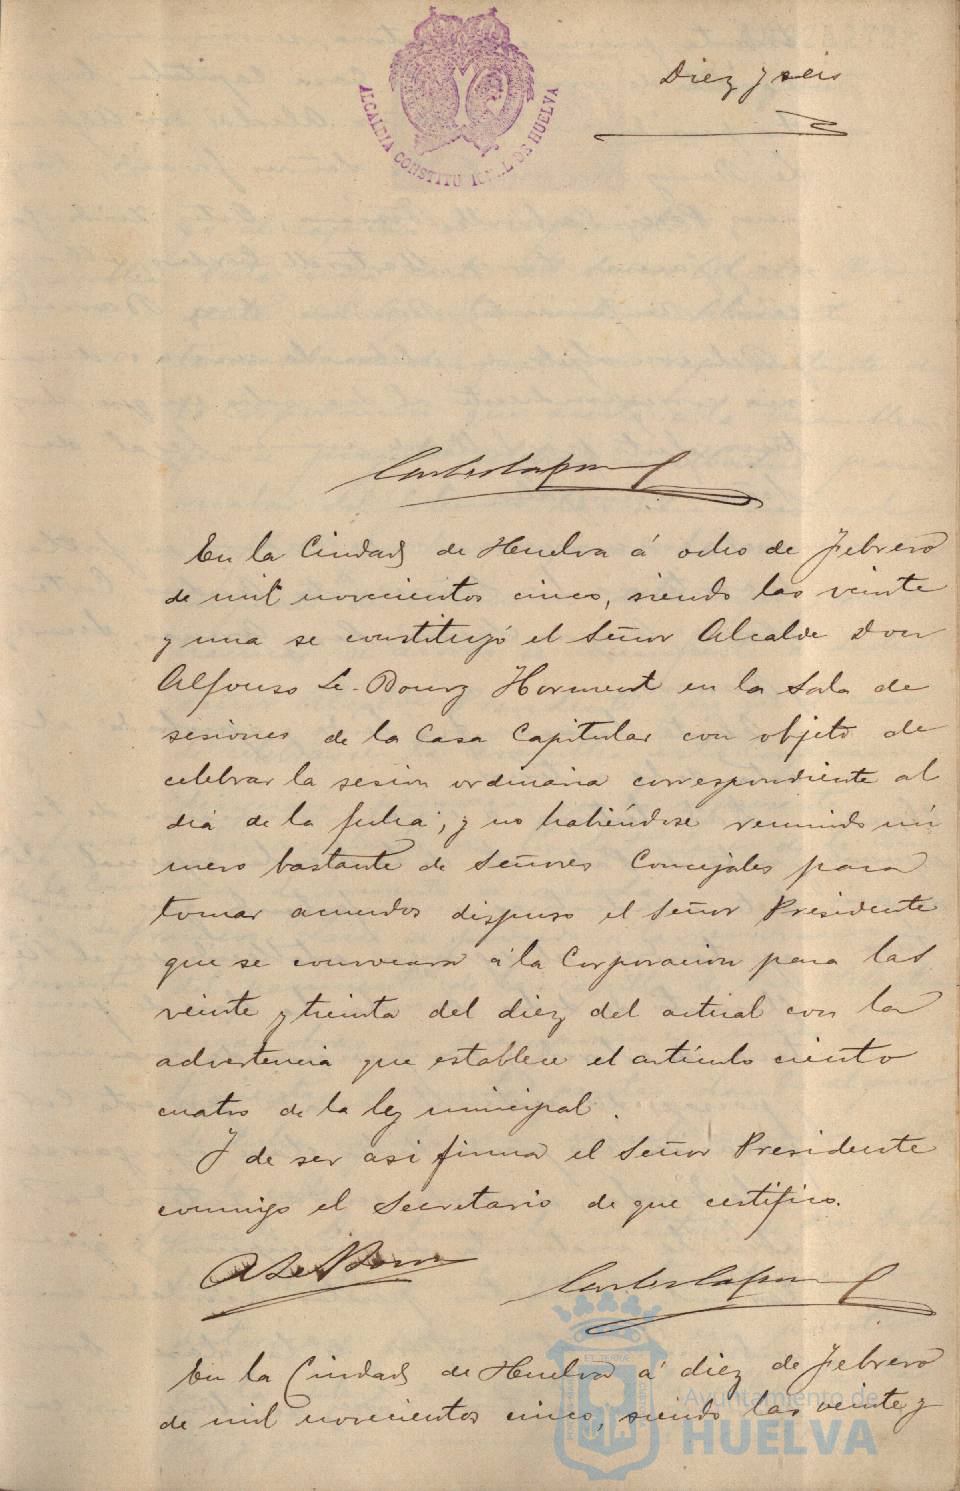 Diez y seis
ALCALDIA CONSTITUCIONAL DE HUELVA
En la Ciudad de Huelva á ocho de Febrero
de mil novecientos cinco, siendo las veinte
y una se constituyó el Señor Alcalde Don
Alfonso Le-Bourg Horment en la Sala de
sesiones de la Casa Capitular con objeto de
celebrar la sesion ordinaria correspondiente al
dia de la fecha, y no habiéndose reunido nú
mero bastante de Señores Concejales para
tomar acuerdos dispuso el Señor Presidente
que se convocara á la Corporacion para las
veinte y treinta del diez del actual con la
advertencia que establece el artículo ciento
cuatro de la ley municipal.
Y de ser asi firma el Señor Presidente
conmigo el Secretario de que certifico.
En la Ciudad de Huelva á diez de Febrero
de mil novecientos cinco, siendo las veinte y
Ayuntamiento de
HUELVA